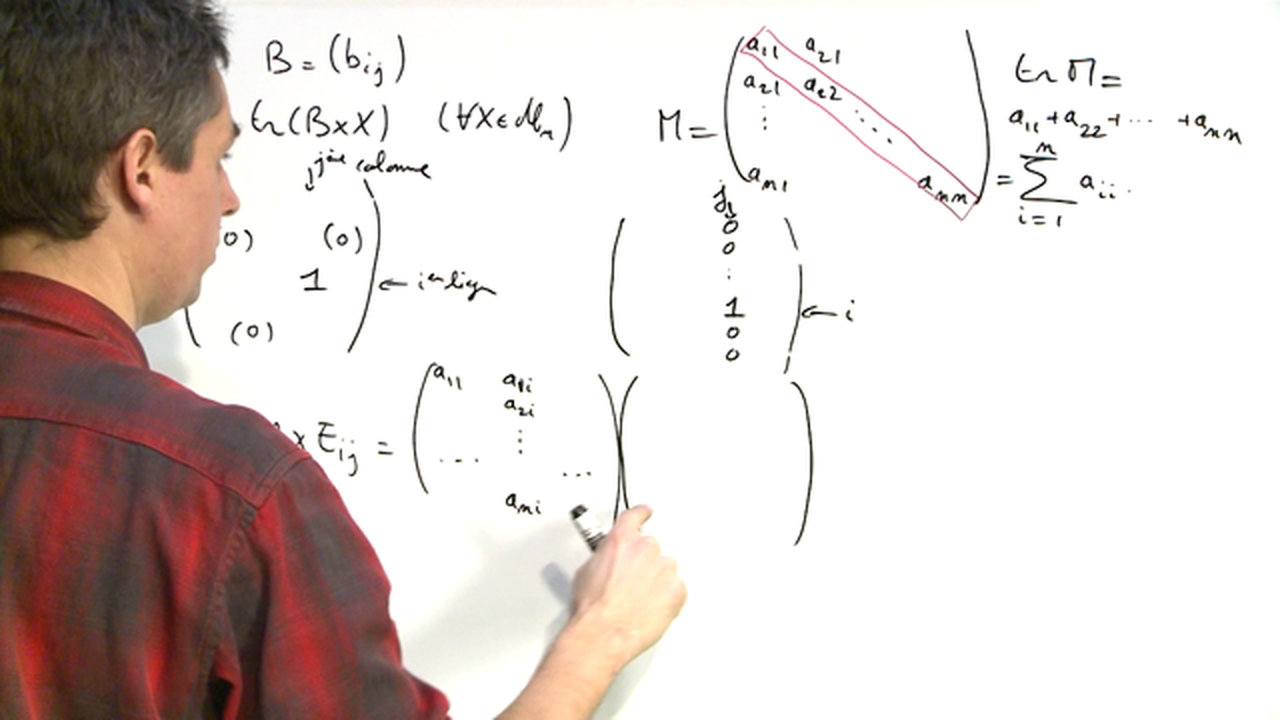 B = (b_{ij})
tr(B×X) (∀X∈M_n)
jème colonne
0) (0)
1 ← i ligne
(0)
M = ( a_{11} a_{21}
a_{21} a_{22}
⋮ ⋱
a_{n1} a_{nn} )
tr M =
a_{11} + a_{22} + ⋯ + a_{nn}
= \sum_{i=1}^{n} a_{ii}.
j
↓
0
0
⋮
1 ← i
0
0
× E_{ij} = ( a_{11} a_{1i}
a_{2i}
⋮
... ...
a_{ni} ) ( )